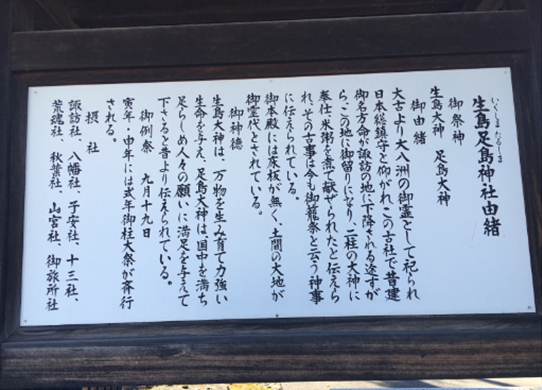 いくしまたるしま
生島足島神社由緒
御祭神
生島大神　足島大神
御由緒
太古より大八洲の御霊として祀られ
日本総鎮守と仰がれ、この古社で昔建
御名方命が諏訪の地に下降される途すが
ら、この地に御留りになり、二柱の大神に
奉仕、米粥を煮て献ぜられたと伝えら
れ、その古事は今も御籠祭と云う神事
に伝えられている。
御本殿には床板が無く、土間の大地が
御霊代とされている。
御神徳
生島大神は、万物を生み育て力強い
生命を与え、足島大神は国中を満ち
足らしめ人々の願いに満足を与えて
下さると昔より伝えられている。
御例祭　九月十九日
寅年・申年には式年御柱大祭が斉行
される。
摂社
諏訪社、八幡社、子安社、十三社、
荒魂社、秋葉社、山宮社　御旅所社